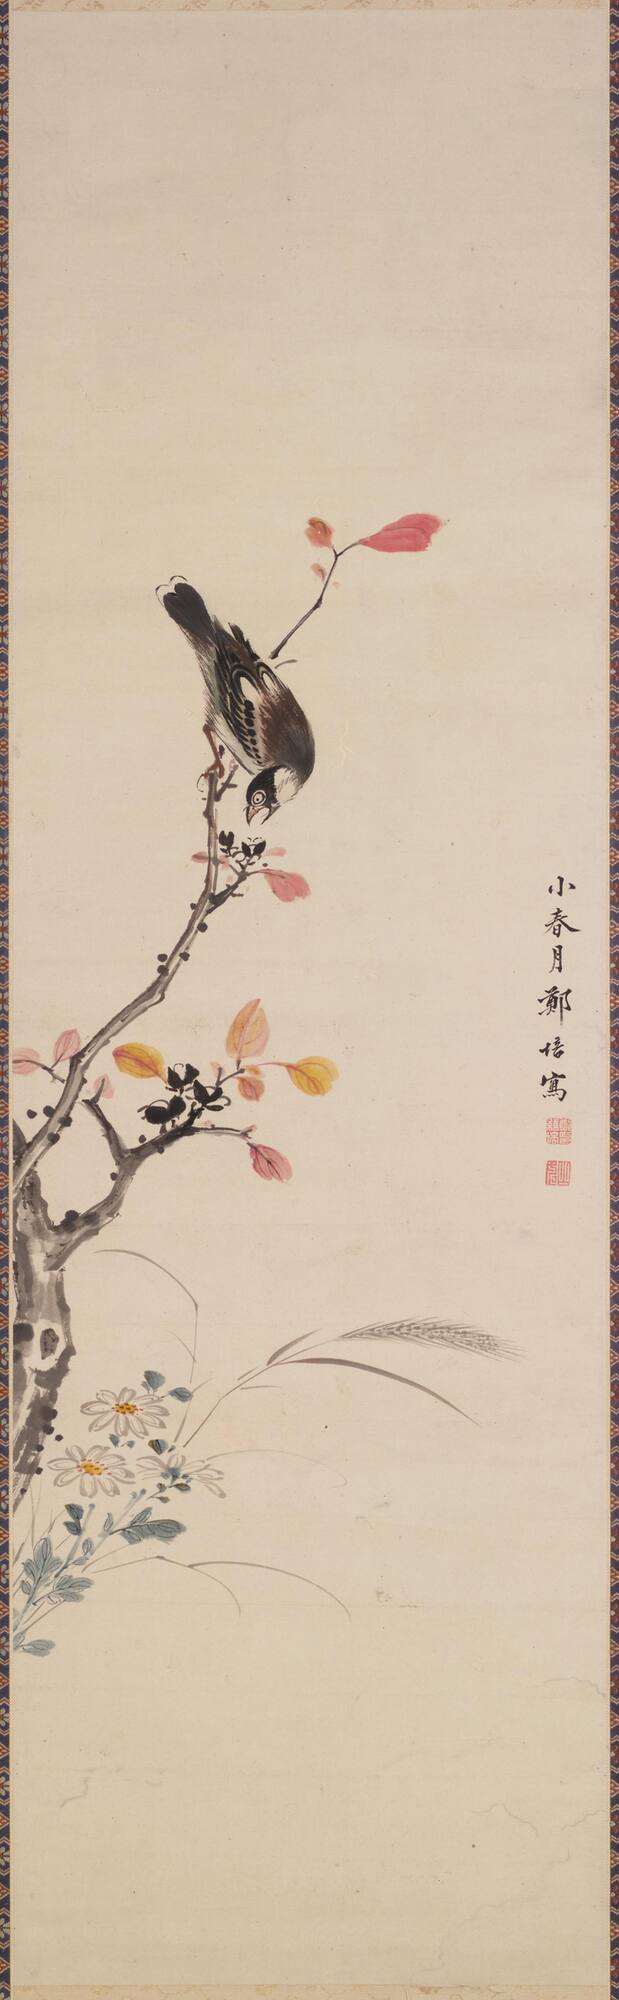 小春月鄭培寫